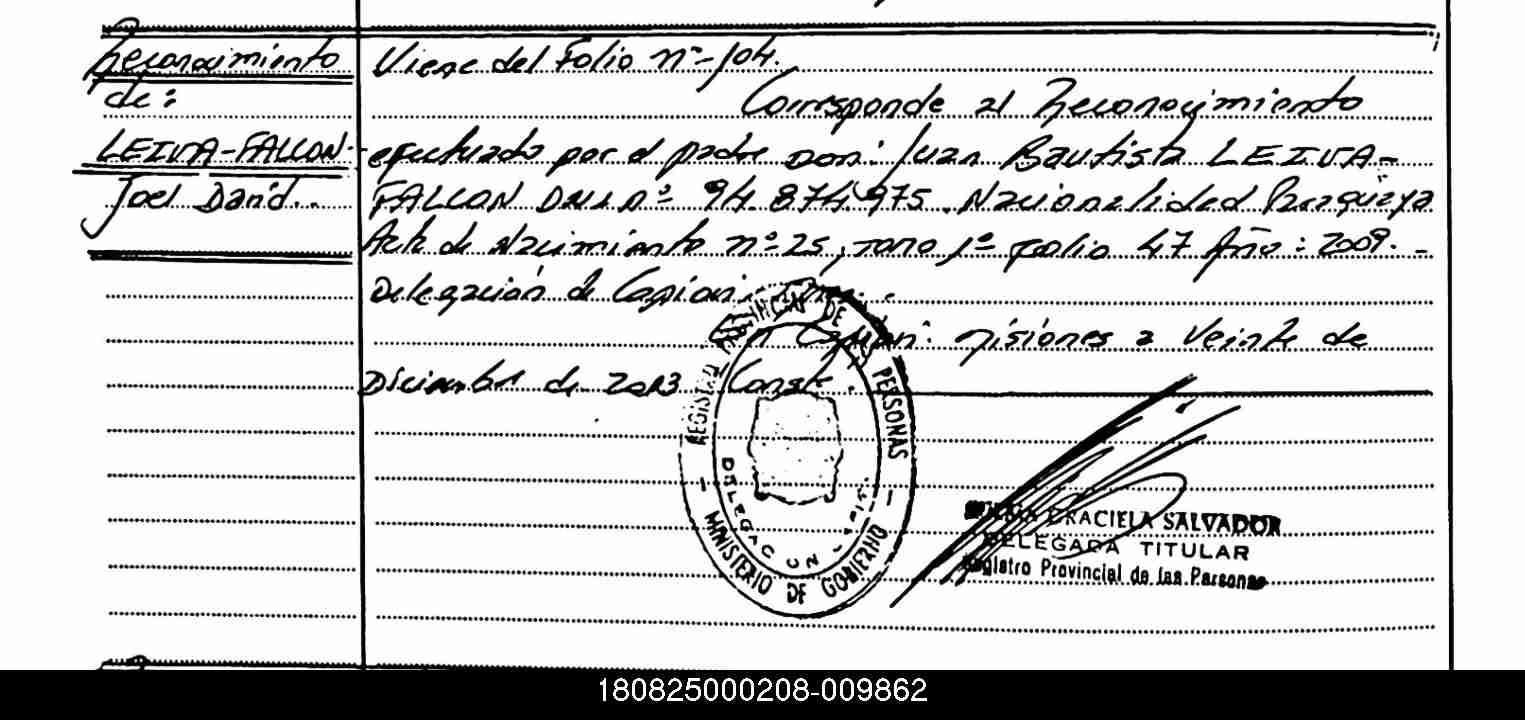 Reconocimiento
de:
LEIVA-FALLON-
Joel David..
Viene del Folio nº-104.
Corresponde al Reconocimiento
efectuado por el padre Don: Juan Bautista LEIVA-
FALLON DNI nº 94.874.975. Nacionalidad Paraguaya
Acta de Nacimiento nº-25, Tomo 1º Folio 47 Año: 2009.-
Delegación de Capiovi.
Capiovi: Misiones a Veinte de
Diciembre de 2013. Conste.
REGISTRO PROVINCIAL DE LAS PERSONAS
DELEGACION CAPIOVI
- MINISTERIO DE GOBIERNO -
GRACIELA SALVADOR
DELEGADA TITULAR
Registro Provincial de las Personas
180825000208-009862